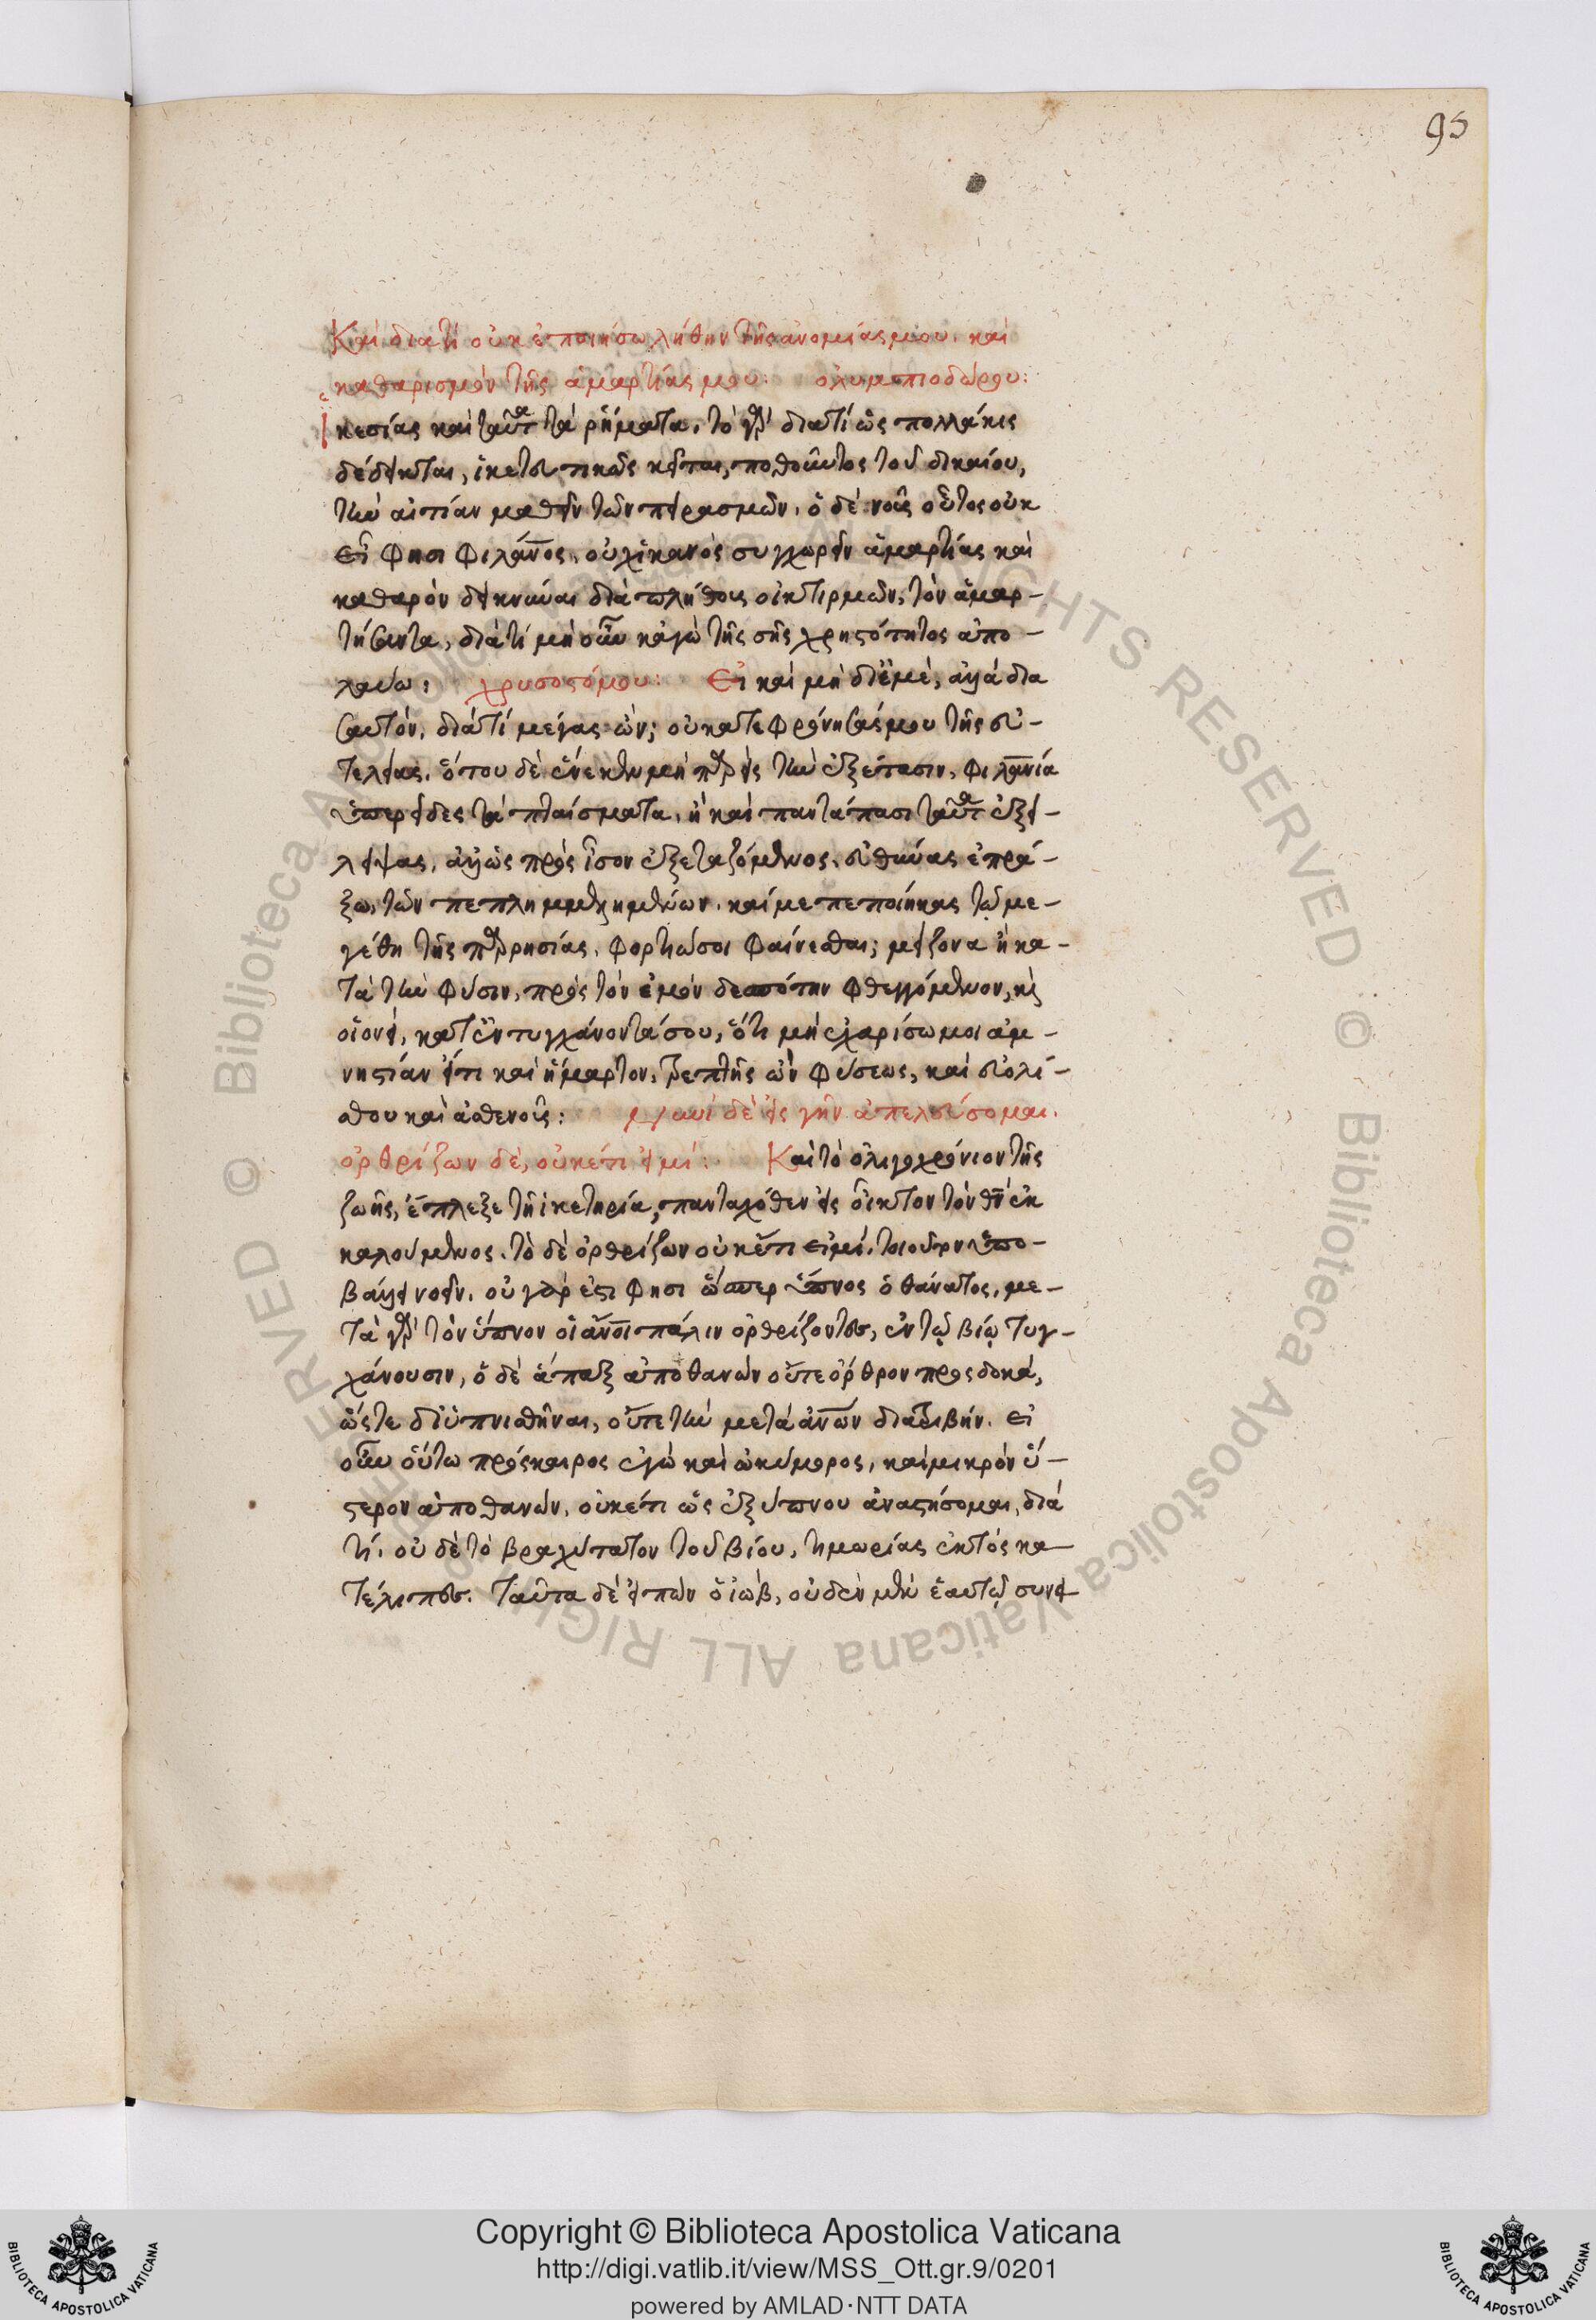 95
Καὶ διατί οὐκ ἐποιήσω λήθην τῆς ἀνομίας μου. καὶ
καθαρισμὸν τῆς ἁμαρτίας μου: ὀλυμπιοδώρου:
Ἱκεσίας καὶ ταῦτα τὰ ῥήματα, τὸ γὰρ διατί ὡς πολλάκις
δέδεικται, ἱκετευτικῶς κεῖται, ποθοῦντος τοῦ δικαίου,
τὴν αἰτίαν μαθεῖν τῶν πειρασμῶν. ὁ δὲ νοῦς οὗτος οὐκ
εἶ φησι φιλάνος, οὐχ ἱκανὸς συγχωρεῖν ἁμαρτίας καὶ
καθαρὸν δεικνύναι διὰ πλήθους οἰκτιρμῶν, τὸν ἁμαρ-
τήσαντα, διὰ τί μὴ οὖν κἀγὼ τῆς σῆς χρηστότητος ἀπο-
λαύω: χρυσοστόμου: Εἰ καὶ μὴ δι' ἐμὲ, ἀλλὰ δια
σαυτὸν, διατί μέγας ὢν; οὐ κατεφρόνησάς μου τῆς εὐ-
τελείας. ὅπου δὲ ἕνεκεν μὴ παρῇς τὴν ἐξέτασιν, φιλανία
ὑπερεῖδες τὰ πταίσματα, ἢ καὶ παντάπασι ταῦτα ἐξή-
λειψας, ἀλλ' ὡς πρὸς ἴσον ἐξεταζόμενος, εὐθύνας ἐπρά-
ξω, τῶν πεπλημμελημένων. καί με πεποίηκας τῷ με-
γέθη τῆς παρρησίας, φορτικόν σοι φαίνεσθαι; μείζονα ἢ κα-
τὰ τὴν φύσιν, πρὸς τὸν ἐμὸν δεσπότην φθεγγόμενον, κὶ
οἱονεὶ, κατεντυγχάνοντά σου, ὅτι μὴ ἐχαρίσω μοι ἀμ-
νηστίαν εἴ τι καὶ ἥμαρτον, τρεπτῆς ὢν φύσεως, καὶ εὐολί-
σθου καὶ ἀσθενοῦς: νυνὶ δὲ εἰς γῆν ἀπελεύσομαι.
ὀρθρίζων δὲ, οὐκέτι εἰμί: Καὶ τὸ ὀλιγοχρόνιον τῆς
ζωῆς, ἔπλεξε τῇ ἱκετηρία, πανταχόθεν εἰς οἶκτον τὸν θν ἐκ
καλούμενος. τὸ δὲ ὀρθρίζων οὐκ ἔτι εἰμί, τοιοῦτον ὑπο-
βάλλει νοεῖν. οὐ γάρ ἐστι φησι ὥσπερ ὕπνος ὁ θάνατος, με-
τὰ γὰρ τὸν ὕπνον οἱ ἄνοι πάλιν ὀρθρίζοντες, ἐν τῷ βίῳ τυγ-
χάνουσιν, ὁ δὲ ἅπαξ ἀποθανὼν οὔτε ὄρθρον προςδοκᾷ,
ὥςτε διϋπνισθῆναι, οὔτε τὴν μετὰ ἀνων διατριβήν. εἰ
οὖν οὕτω πρόςκαιρος ἐγὼ καὶ ὠκύμορος, καὶ μικρὸν ὕ-
στερον ἀποθανὼν, οὐκέτι ὡς ἐξ ὕπνου ἀναστήσομαι, διὰ
τί, οὐδὲ τὸ βραχύτατον τοῦ βίου, τιμωρίας ἐκτὸς κα-
τέλιπες. Ταῦτα δὲ εἰπὼν ὁ ἰὼβ, οὐδὲν μὲν ἑαυτῷ συνει
Copyright © Biblioteca Apostolica Vaticana
http://digi.vatlib.it/view/MSS_Ott.gr.9/0201
powered by AMLAD·NTT DATA
BIBLIOTECA APOSTOLICA VATICANA
BIBLIOTECA APOSTOLICA VATICANA
© Biblioteca Apostolica Vaticana ALL RIGHTS RESERVED © Biblioteca Apostolica Vaticana ALL RIGHTS RESERVED